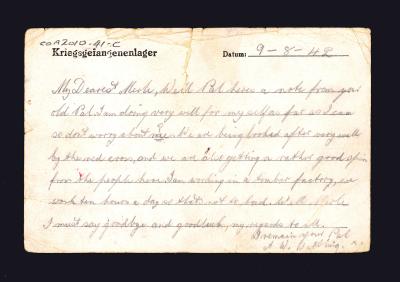 COA2010-41-C
Kriegsgefangenenlager Datum: 9-8-42
My Dearest Merle, Well Pal heres a note from your
old Pal. I am doing very well for myself as far as I can
so don't worry about me. We are being looked after very well
by the red cross, and we are also getting a rather good spin
from the people here. I am working in a timber factory, we
work ten hours a day so thats not to bad. Well Merle
I must say goodbye and goodluck, my regards to all.
I remain your Pal
A. W.